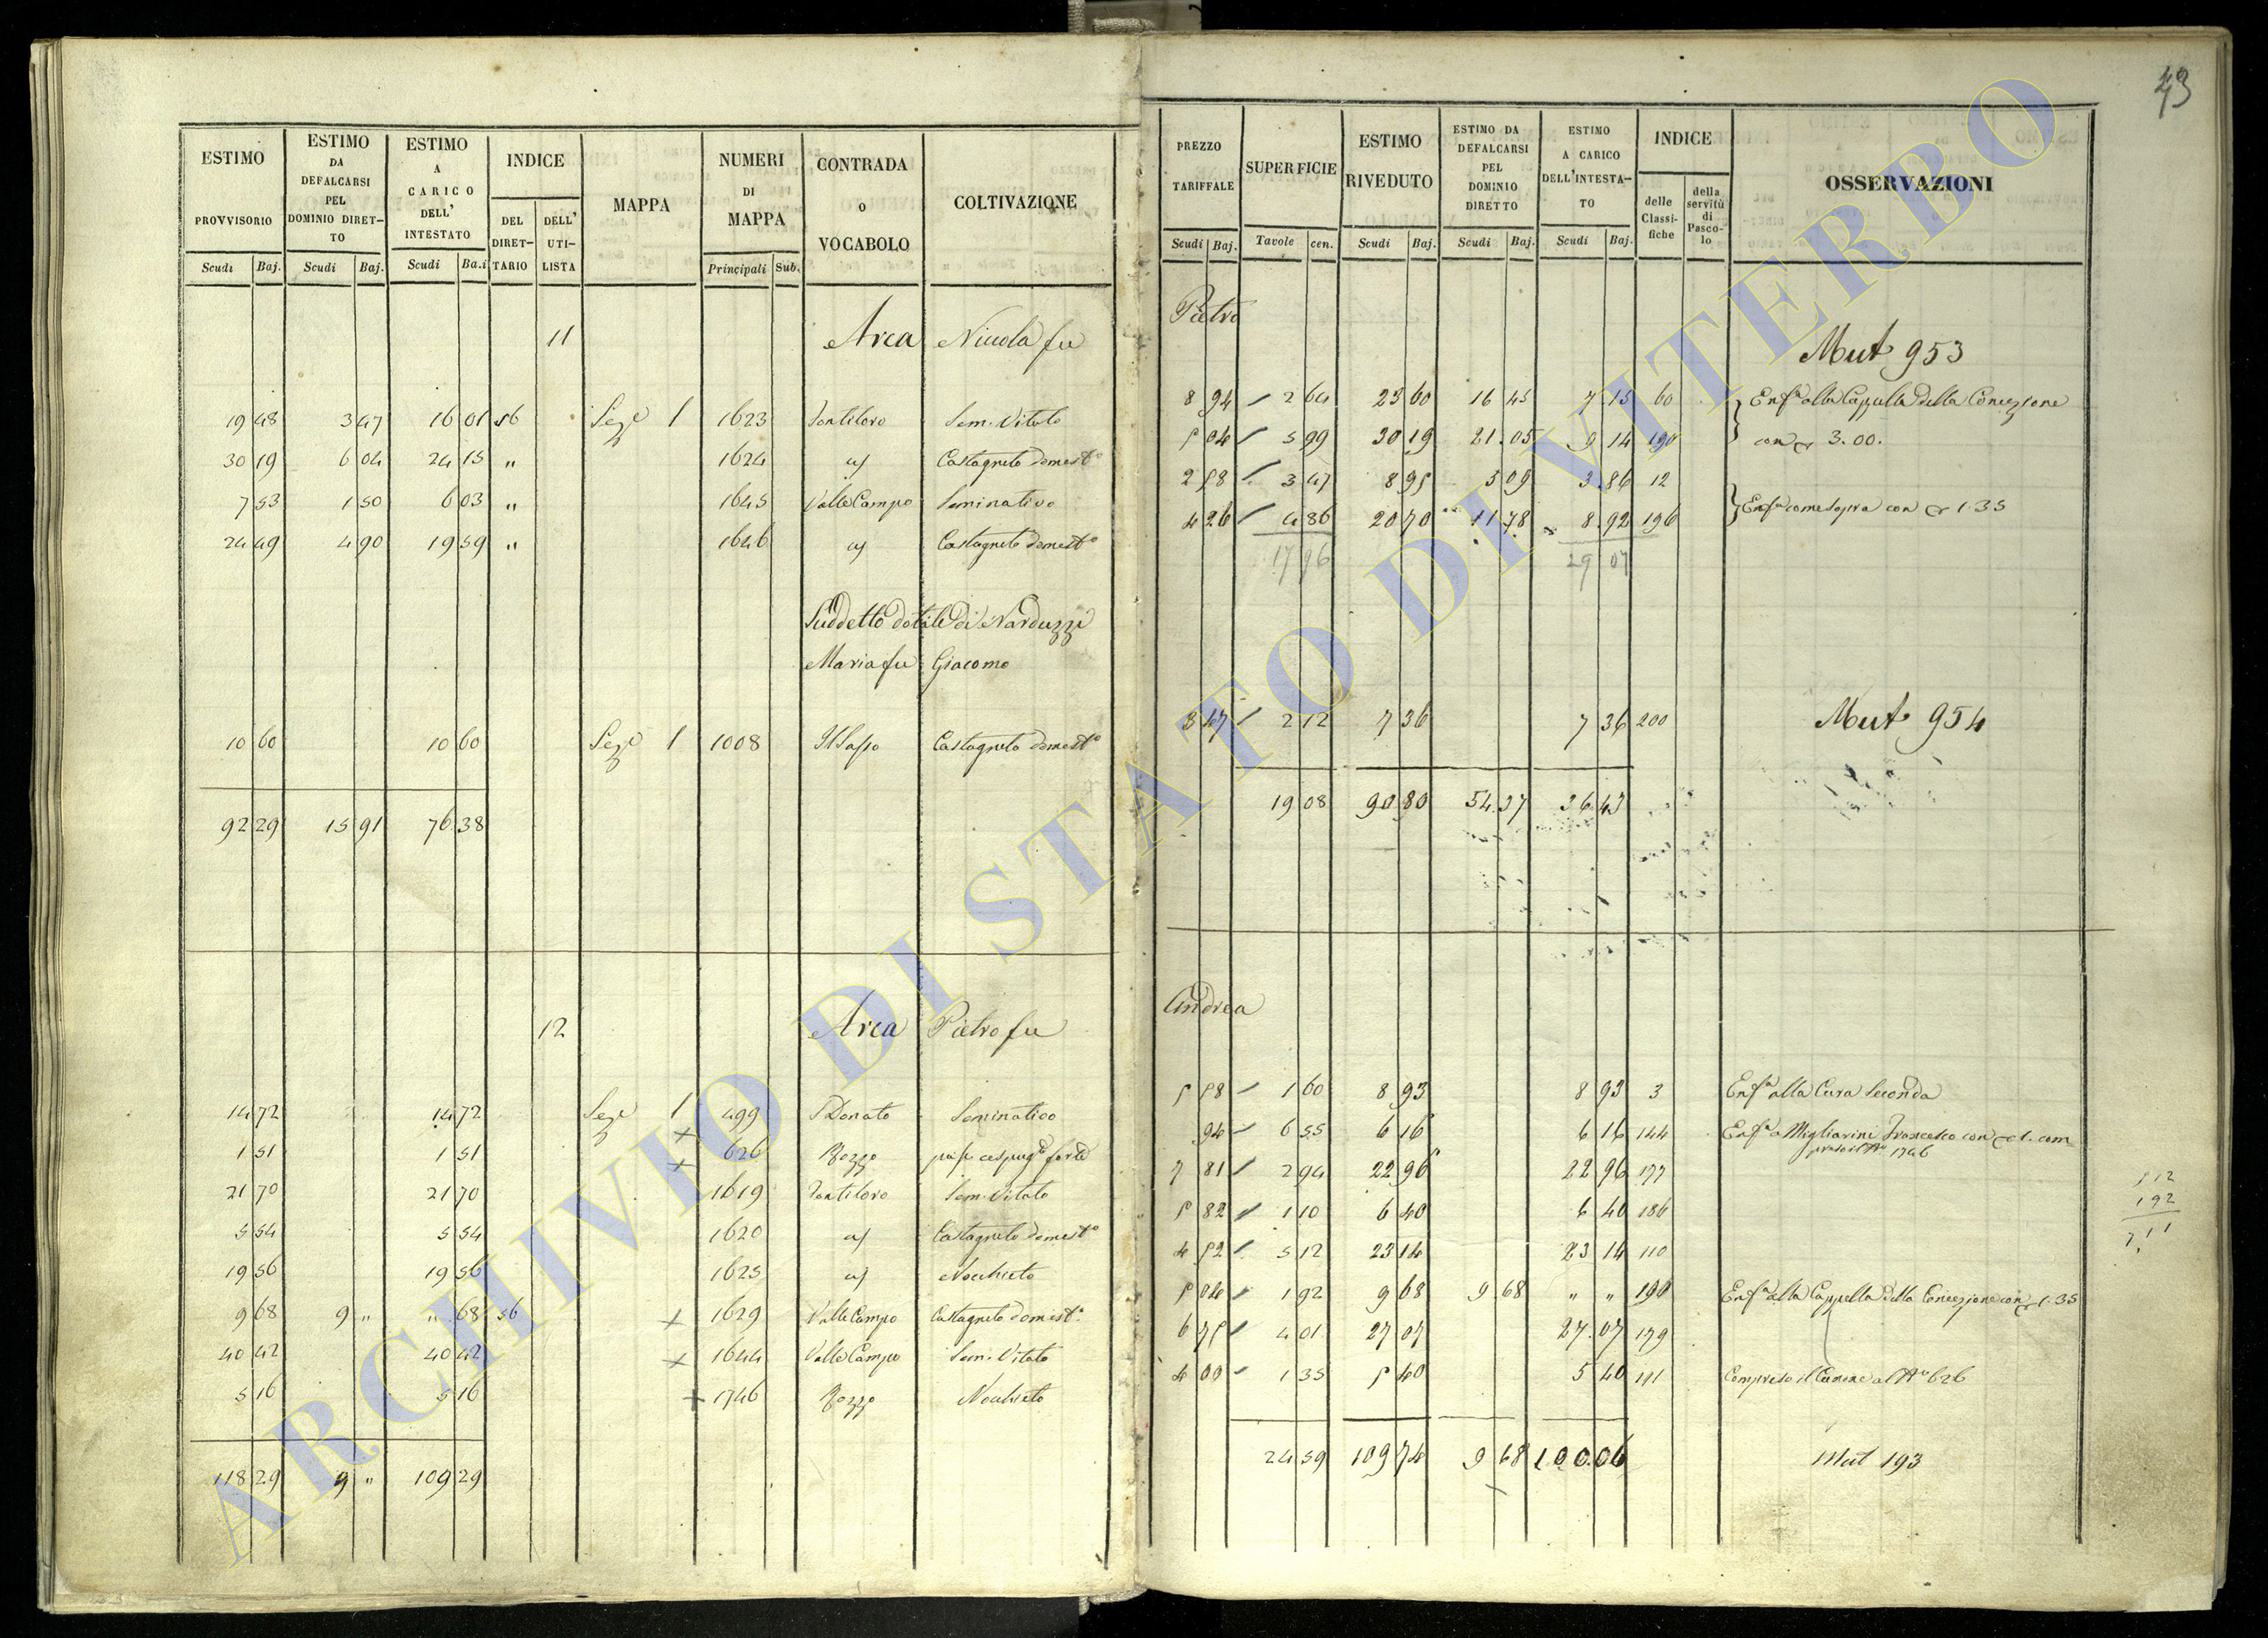 43
ESTIMO PROVVISORIO Scudi Baj. ESTIMO DA DEFALCARSI PEL DOMINIO DIRETTO Scudi Baj. ESTIMO A CARICO DELL' INTESTATO Scudi Ba.i INDICE DEL DIRETTARIO DELL' UTILISTA MAPPA NUMERI DI MAPPA Principali Sub. CONTRADA O VOCABOLO COLTIVAZIONE
11 Arca Nicola fu
19 48 3 47 16 01 56 Sez.e 1 1623 Sem. Vitato
30 19 6 04 24 15 " 1624 Castagneto domest.o
7 53 1 50 6 03 " 1645 Valle Campo Seminativo
24 49 4 90 19 59 " 1646 Castagneto domest.o
Suddetto dotale di Narduzzi
Maria fu Giacomo
10 60 10 60 Sez.e 1 1008 Il Sasso Castagneto domest.o
92 29 15 91 76 38
12 Arca Pietro fu
14 72 14 72 Sez.e 1 499 S Donato Seminativo
1 51 1 51 626 Pozzo
21 70 21 70 1619 Sem. Vitato
5 54 5 54 1620 Castagneto domest.o
19 56 19 56 1625 Nocchieto
9 68 9 " " 68 56 1629 Valle Campo Castagneto domest.o
40 42 40 42 1644 Valle Campo Sem. Vitato
5 16 5 16 1746 Pozzo Nocchieto
118 29 9 " 109 29
PREZZO TARIFFALE Scudi Baj. SUPERFICIE Tavole cen. ESTIMO RIVEDUTO Scudi Baj. ESTIMO DA DEFALCARSI PEL DOMINIO DIRETTO Scudi Baj. ESTIMO A CARICO DELL'INTESTATO Scudi Baj. INDICE delle Classifiche della servitù di Pascolo OSSERVAZIONI
Pietro
Mut 953
8 94 2 64 23 60 16 45 7 15 60 Enf.a alla Cappella della Concezione
5 04 5 99 30 19 21 05 9 14 190 con 3.00.
2 58 3 47 8 95 5 09 3 86 12
4 26 4 86 20 70 11 78 8 92 196 Enf.a come sopra con 1.35
17 96 29 07
3 47 2 12 7 36 7 36 200 Mut 954
19 08 90 80 54 37 36 43
Andrea
5 58 1 60 8 93 8 93 3 Enf.a alla Cura Seconda
94 6 55 6 16 6 16 144 Enf.a a Migliarini Francesco con 1. com
preso il N.o 1746
7 81 2 94 22 96 22 96 177
5 82 1 10 6 40 6 40 186
4 52 5 12 23 14 23 14 110
5 04 1 92 9 68 9 68 " " 190 Enf.a alla Cappella della Concezione con 1.35
6 75 4 01 27 07 27 07 179
4 00 1 35 5 40 5 40 111 Compreso il Canone al N.o 626
24 59 109 74 9 68 100 06 Mut 193
512
192
ARCHIVIO DI STATO DI VITERBO